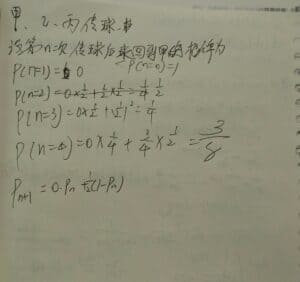 甲、乙、丙传球
设第n次传球后球回到甲的概率为
P(n=1)=0 P(n=0)=1
P(n=2)=0×1/2+1/2×1/2=1/2
P(n=3)=0×1/2+(1/2)²=1/4
P(n=4)=0×1/4+3/4×1/2=3/8
Pn+1=0·Pn+1/2(1-Pn)